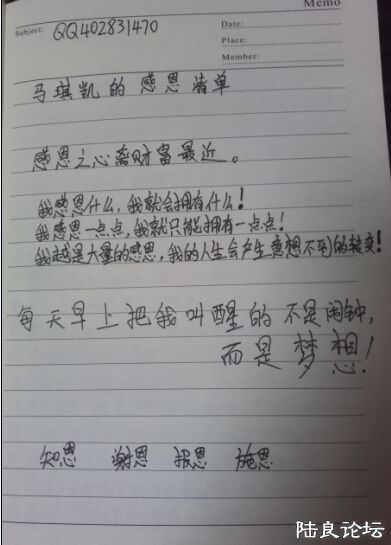 Memo
Subject: QQ402831470
Date:
Place:
Member:
马琪凯的感恩清单
感恩之心离财富最近。
我感恩什么,我就会拥有什么!
我感恩一点点,我就只能拥有一点点!
我越是大量的感恩,我的人生会产生意想不到的转变!
每天早上把我叫醒的不是闹钟,
而是梦想!
知恩 谢恩 报恩 施恩
陆良论坛